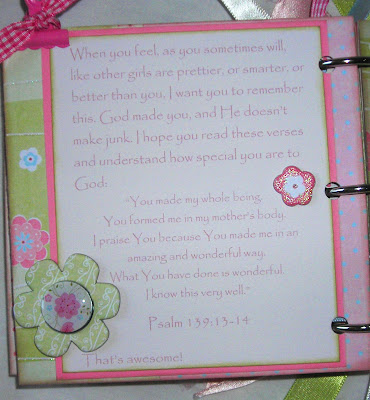 When you feel, as you sometimes will,
like other girls are prettier, or smarter, or
better than you, I want you to remember
this. God made you, and He doesn't
make junk. I hope you read these verses
and understand how special you are to
God:
"You made my whole being.
You formed me in my mother's body.
I praise You because You made me in an
amazing and wonderful way.
What You have done is wonderful.
I know this very well."
Psalm 139:13-14
That's awesome!